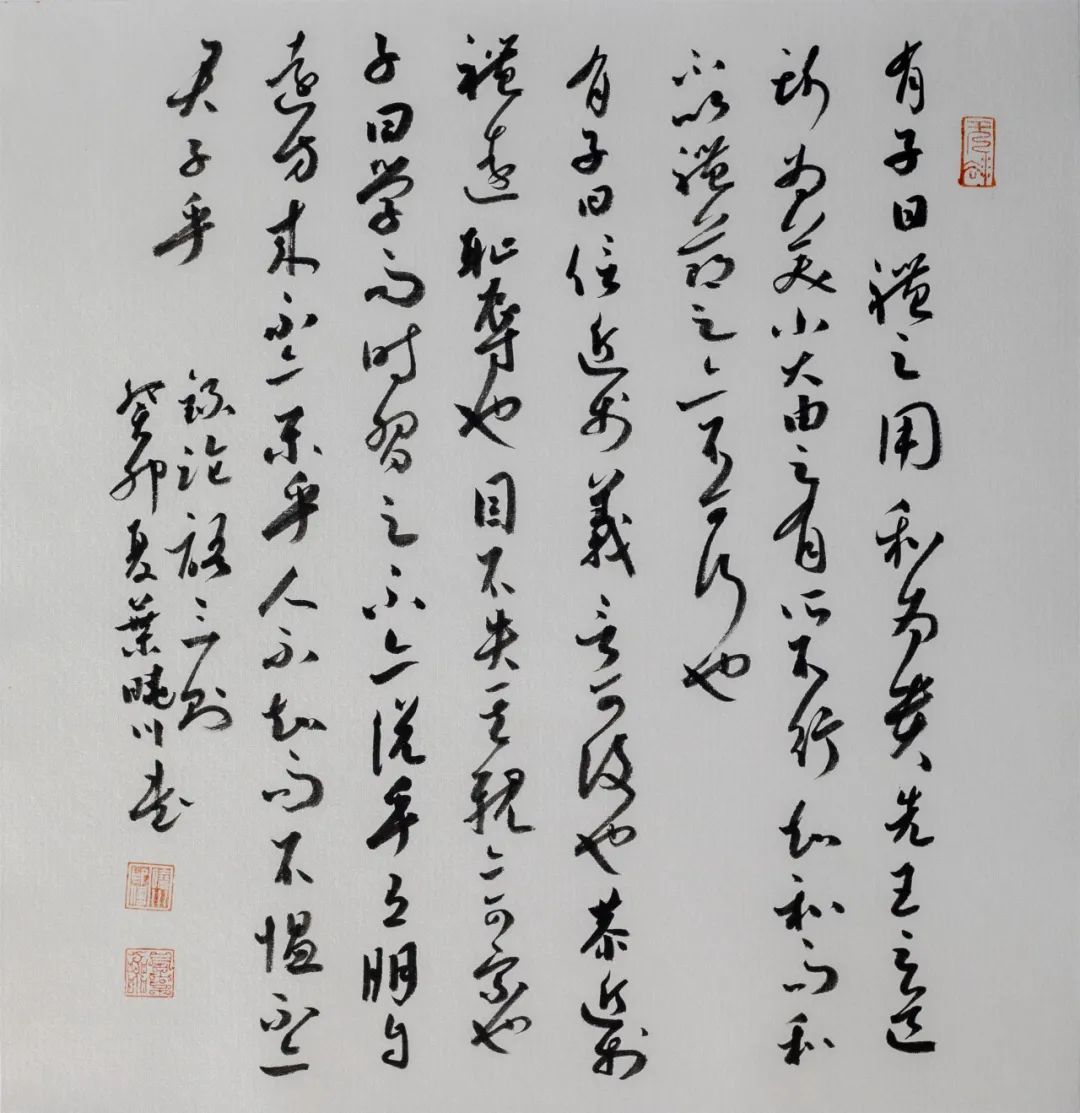 有子曰禮之用和为贵先王之道
斯为美小大由之有所不行知和而和
不以禮节之亦不可行也
有子曰信近於義言可復也恭近於
禮遠耻辱也因不失其親亦可宗也
子曰学而时習之不亦说乎有朋自
遠方来不亦乐乎人不知而不愠不亦
君子乎
錄论語三则
癸卯夏葉曉川书